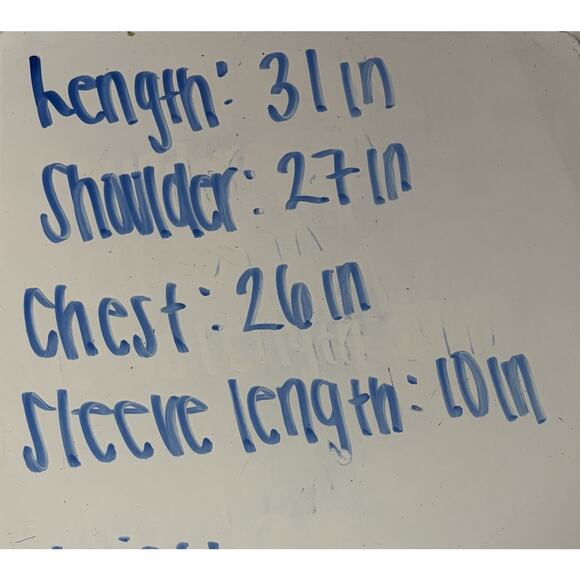 Length: 31in
Shoulder: 27in
Chest: 26in
Sleeve length: 10in